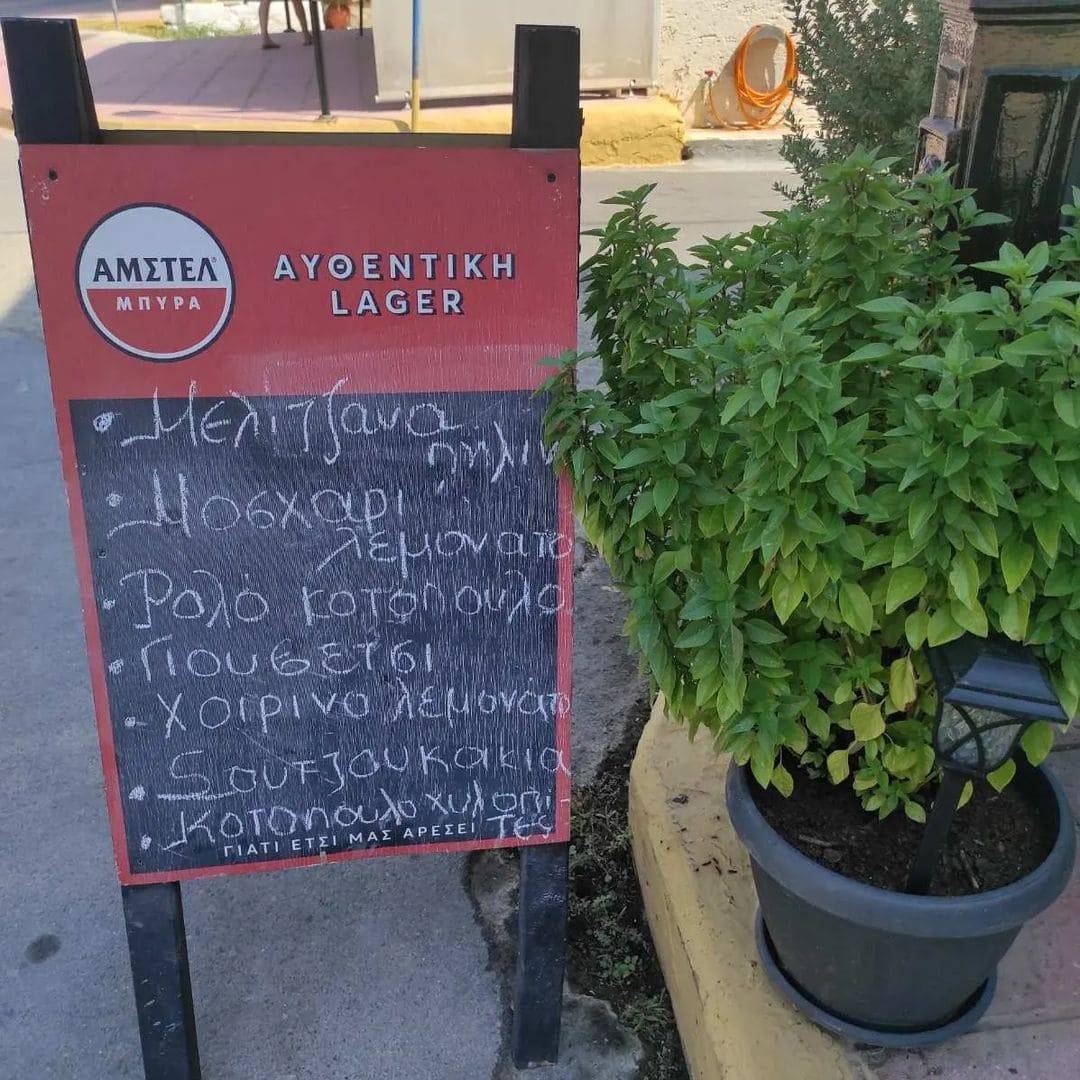 ΑΜΣΤΕΛ®
ΜΠΥΡΑ
ΑΥΘΕΝΤΙΚΗ
LAGER
• Μελιτζανα
• Μοσχαρι
λεμονατο
• Ρολό κοτοπουλο
• Γιουβετσι
• Χοιρινο λεμονάτο
Sουτζουκακια
• Κοτοπουλο χυλοπι-
τες
ΓΙΑΤΙ ΕΤΣΙ ΜΑΣ ΑΡΕΣΕΙ